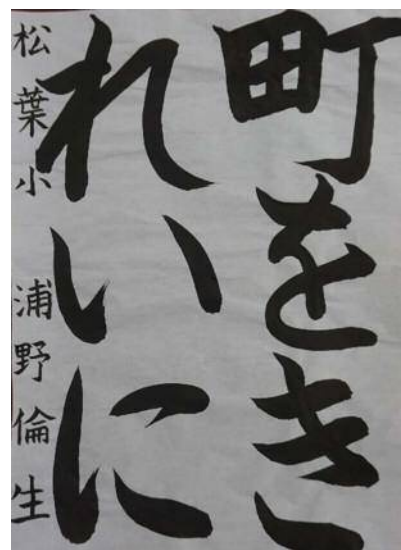 町をき
れいに
松葉小 浦野倫生